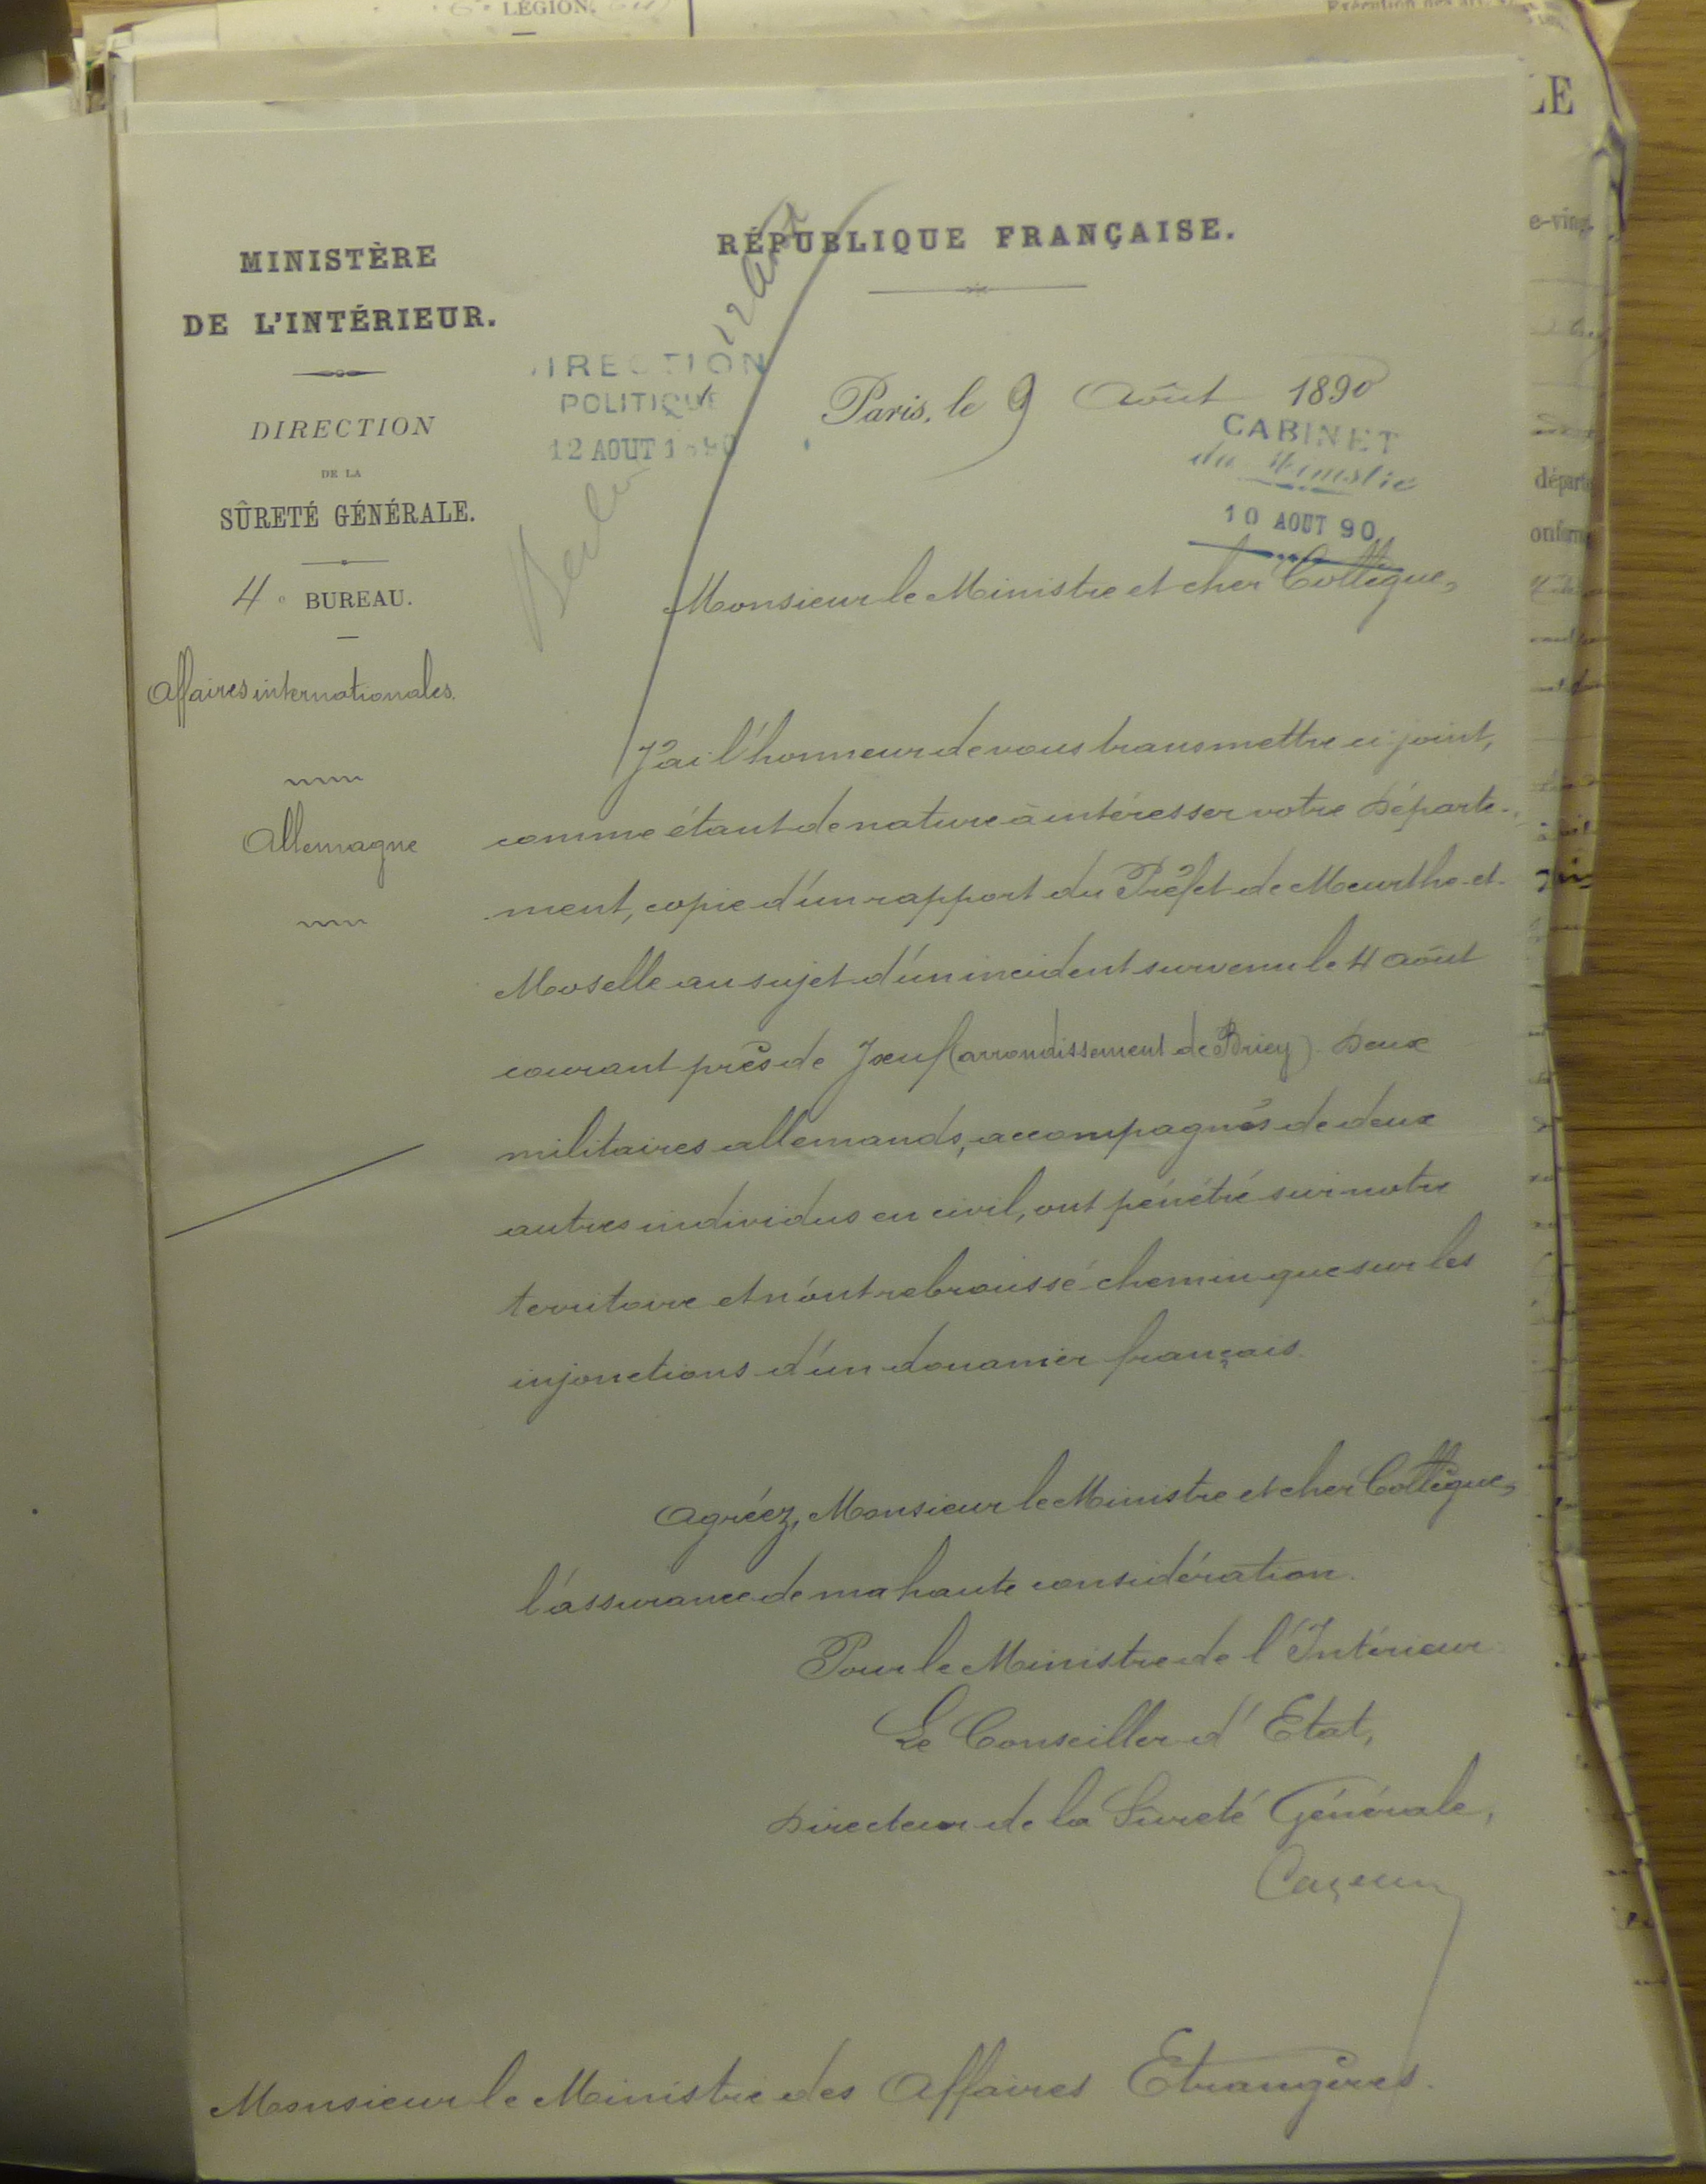 LÉGION.
RÉPUBLIQUE FRANÇAISE.
MINISTÈRE
DE L'INTÉRIEUR.
DIRECTION
DE LA
SÛRETÉ GÉNÉRALE.
4e BUREAU.
Affaires internationales.
Allemagne
12 Août
DIRECTION
POLITIQUE
12 AOUT 1890
Berlin
Paris, le 9 Août 1890
CABINET
du Ministre
10 AOUT 90
Monsieur le Ministre et cher Collègue,
J'ai l'honneur de vous transmettre ci-joint,
comme étant de nature à intéresser votre Départe-
ment, copie d'un rapport du Préfet de Meurthe-et-
Moselle au sujet d'un incident survenu le 4 août
courant près de Joeuf (arrondissement de Briey). Deux
militaires allemands, accompagnés de deux
autres individus en civil, ont pénétré sur notre
territoire et n'ont rebroussé chemin que sur les
injonctions d'un douanier français.
Agréez, Monsieur le Ministre et cher Collègue,
l'assurance de ma haute considération.
Pour le Ministre de l'Intérieur
Le Conseiller d'Etat,
Directeur de la Sûreté Générale,
Monsieur le Ministre des Affaires Etrangères.